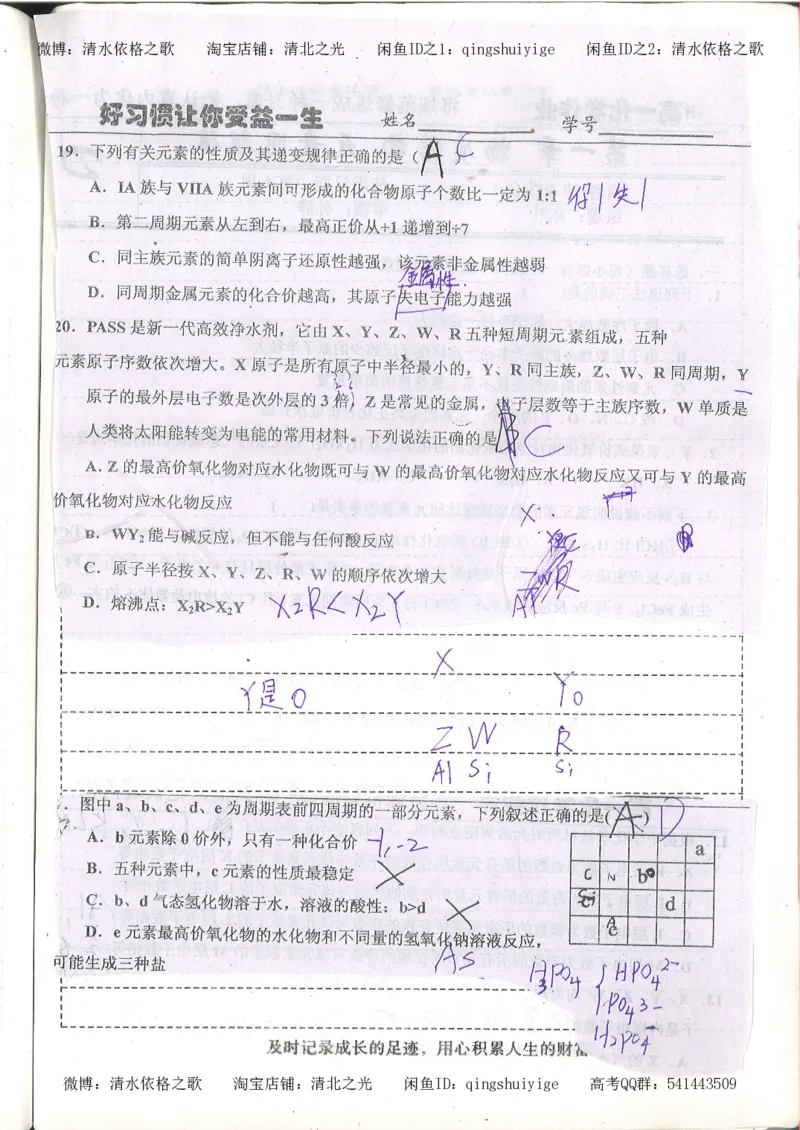 微博：清水依格之歌 淘宝店铺：清北之光 闲鱼ID之1：qingshuiyige 闲鱼ID之2：清水依格之歌
好习惯让你受益一生 姓名 学号
19．下列有关元素的性质及其递变规律正确的是（ A C
A．IA 族与 VIIA 族元素间可形成的化合物原子个数比一定为 1:1
B．第二周期元素从左到右，最高正价从+1 递增到+7
C．同主族元素的简单阴离子还原性越强，该元素非金属性越弱
金属性
D．同周期金属元素的化合价越高，其原子失电子能力越强
20．PASS 是新一代高效净水剂，它由 X、Y、Z、W、R 五种短周期元素组成，五种
元素原子序数依次增大。X 原子是所有原子中半径最小的，Y、R 同主族，Z、W、R 同周期，Y
原子的最外层电子数是次外层的 3 倍，Z 是常见的金属，电子层数等于主族序数，W 单质是
人类将太阳能转变为电能的常用材料。下列说法正确的是 B C
A．Z 的最高价氧化物对应水化物既可与 W 的最高价氧化物对应水化物反应又可与 Y 的最高
价氧化物对应水化物反应
X
B．WY₂能与碱反应，但不能与任何酸反应
C．原子半径按 X、Y、Z、R、W 的顺序依次增大
D．熔沸点：X₂R>X₂Y X₂R<X₂Y
X
Y是O Y O
Z W R
Al Si Si
图中 a、b、c、d、e 为周期表前四周期的一部分元素，下列叙述正确的是( A ) D
A．b 元素除 0 价外，只有一种化合价 -1,-2
a
B．五种元素中，c 元素的性质最稳定
C N b
C．b、d 气态氢化物溶于水，溶液的酸性：b>d
Si d
D．e 元素最高价氧化物的水化物和不同量的氢氧化钠溶液反应，
e
可能生成三种盐 As
H₃PO₄ { HPO₄²⁻
PO₄³⁻
H₂PO₄⁻
及时记录成长的足迹，用心积累人生的财富
微博：清水依格之歌 淘宝店铺：清北之光 闲鱼ID：qingshuiyige 高考QQ群：541443509